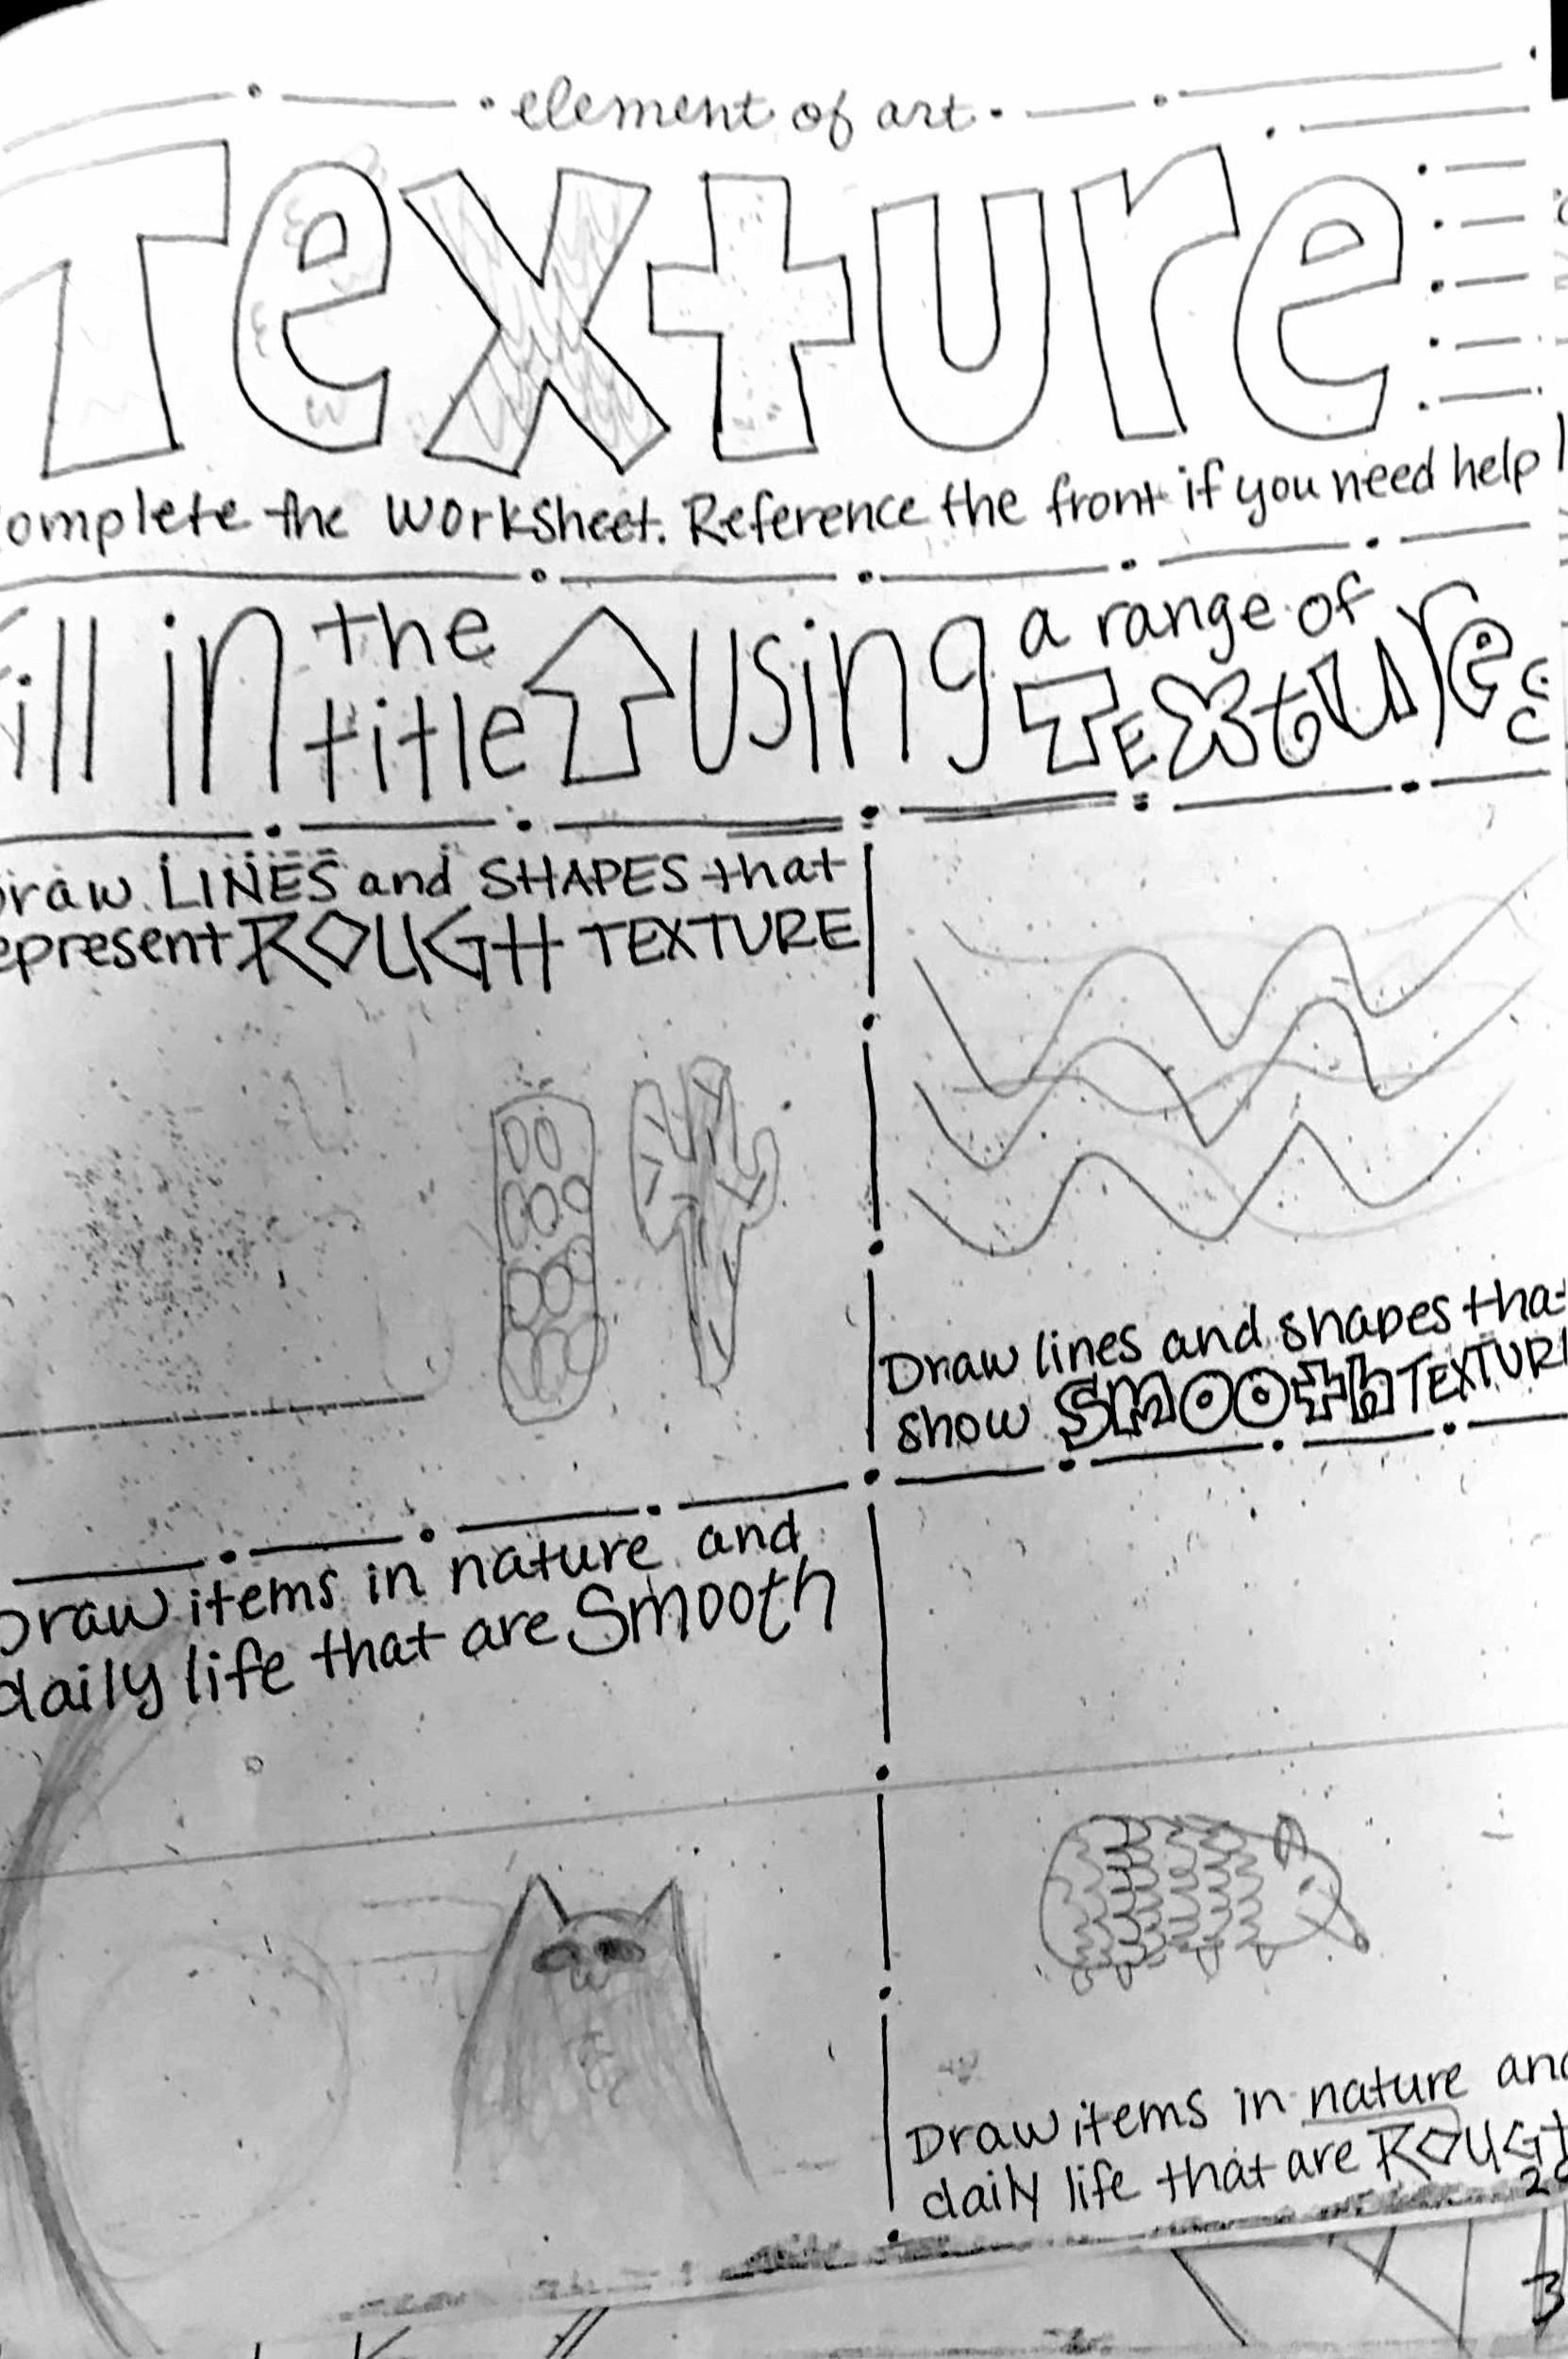 element of art
Texture
omplete the worksheet. Reference the front if you need help!
ill in the title using a range of TExtures
raw LINES and SHAPES that
epresent ROUGH TEXTURE
Draw lines and shapes that
show SMOOth TEXTURE
Draw items in nature and
daily life that are Smooth
Draw items in nature and
daily life that are ROUGH
2
3